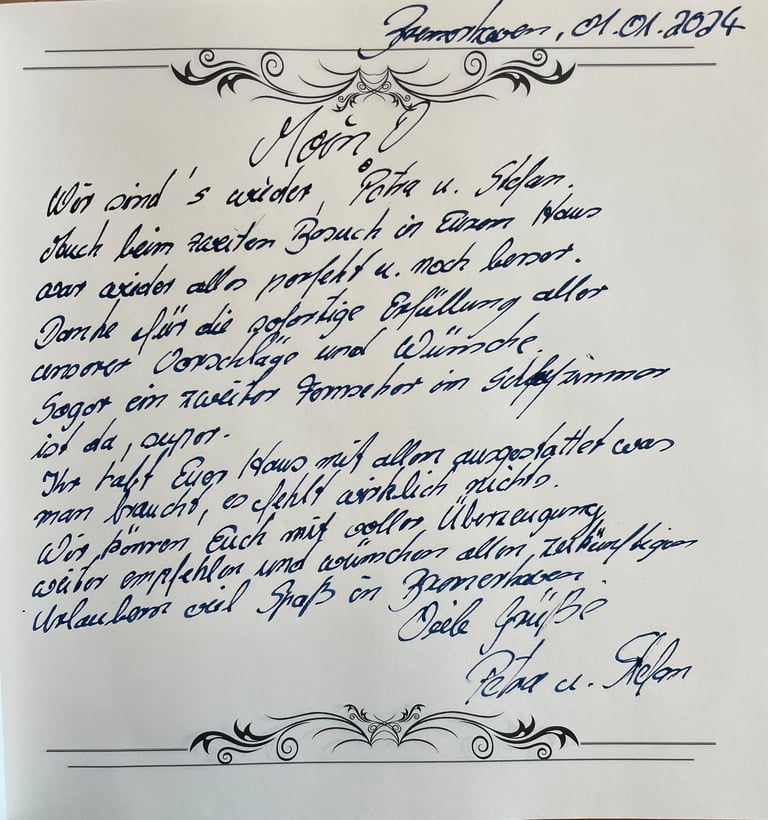 Bremerhaven, 01.01.2024
Moin!
Wir sind's wieder, Petra u. Stefan.
Auch beim zweiten Besuch in Eurem Haus
war wieder alles perfekt u. noch besser.
Danke für die sofortige Erfüllung aller
unserer Vorschläge und Wünsche.
Sogar ein zweiter Fernseher im Schlafzimmer
ist da, super.
Ihr habt Euer Haus mit allem ausgestattet was
man braucht, es fehlt wirklich nichts.
Wir können Euch mit voller Überzeugung
weiter empfehlen und wünschen allen zukünftigen
Urlaubern viel Spaß in Bremerhaven.
Viele Grüße
Petra u. Stefan